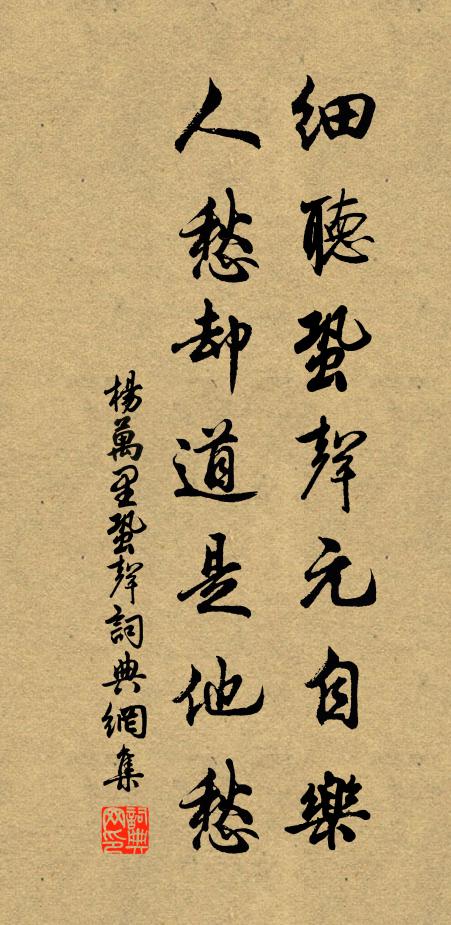 細聽蛩聲元自樂
人愁却道是他愁
楊萬里蛩聲詞典網集
詞典網印